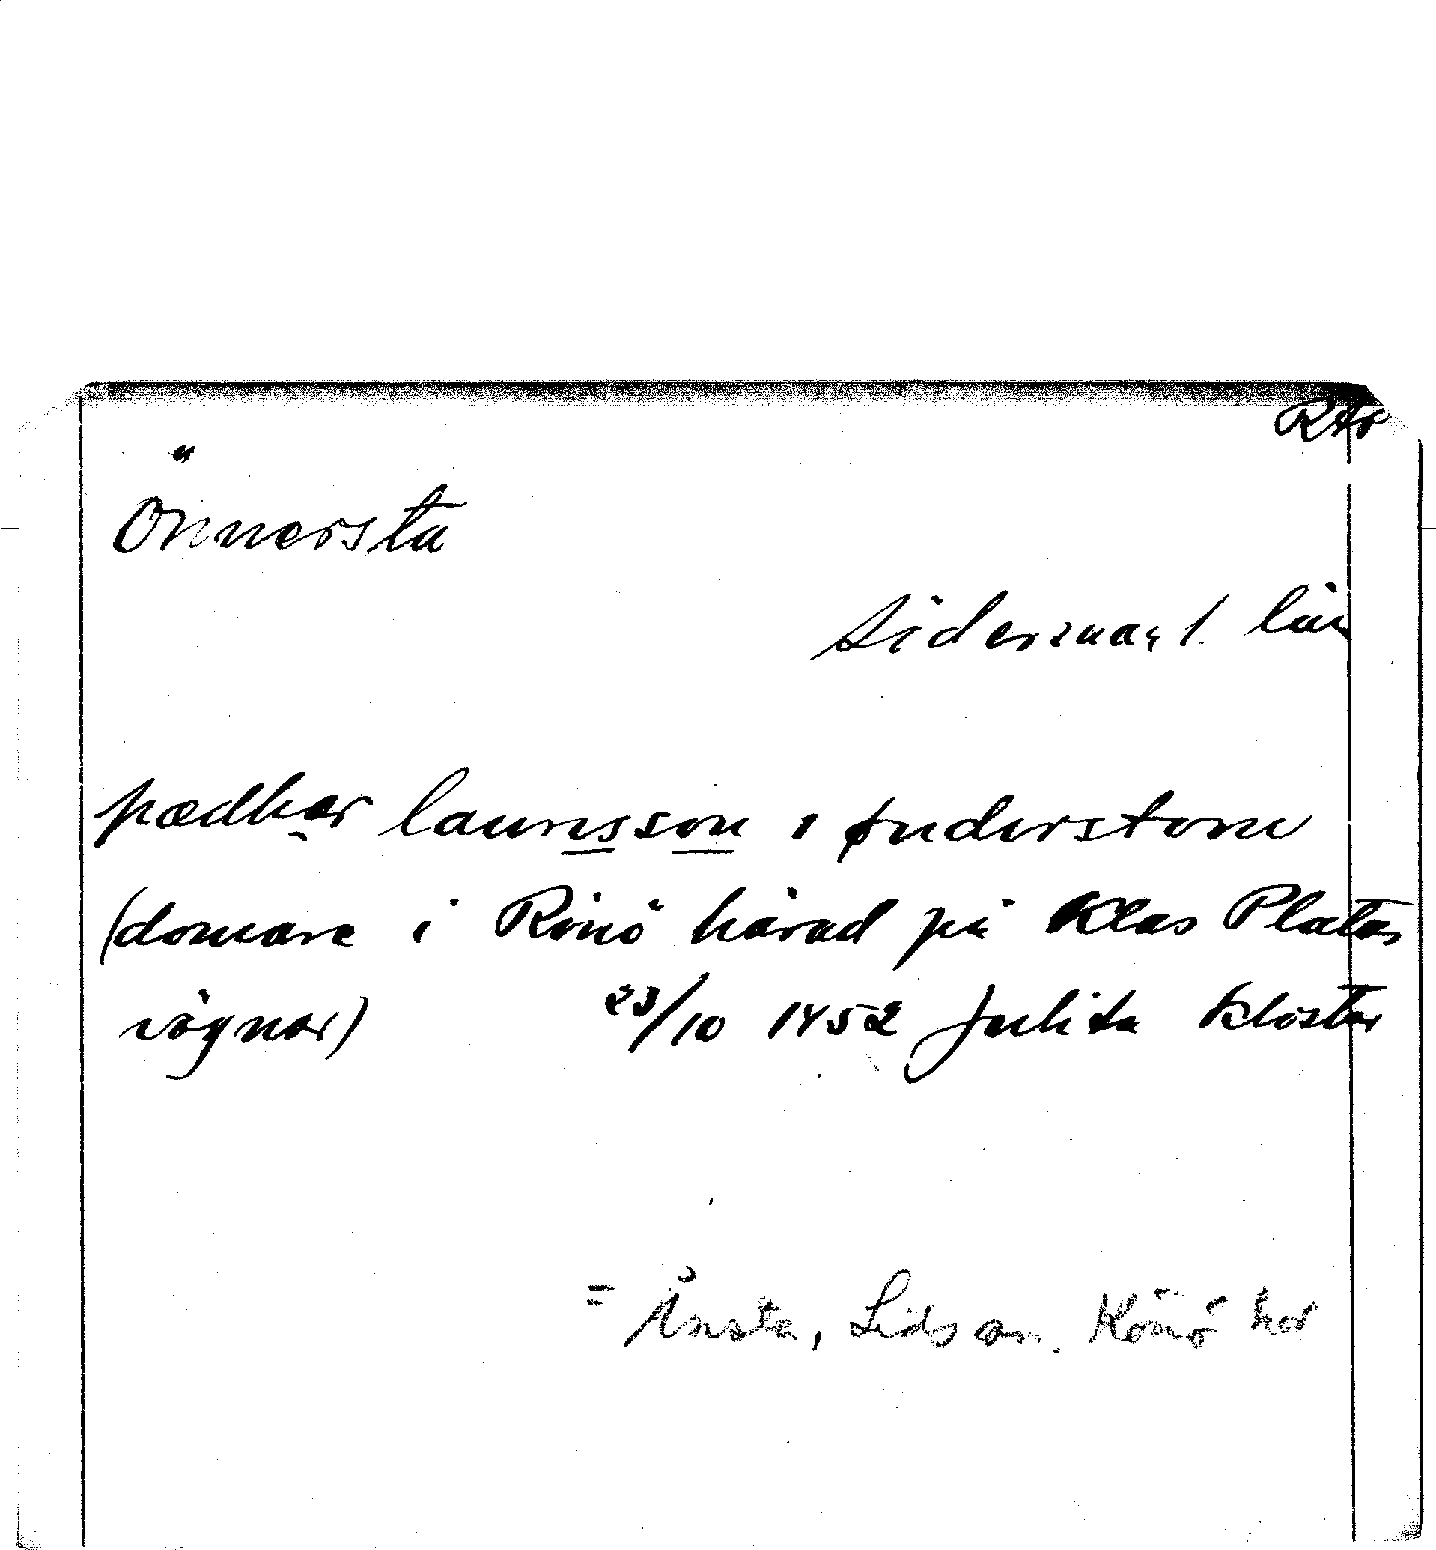 RAp
Önnersta
Södermanl. län
pædhar laurisson i ønderstom
(domare i Rönö härad på Klas Platas
vägnar) 23/10 1452 Julita kloster
= Ånsta, Lids sn. Rönö hd